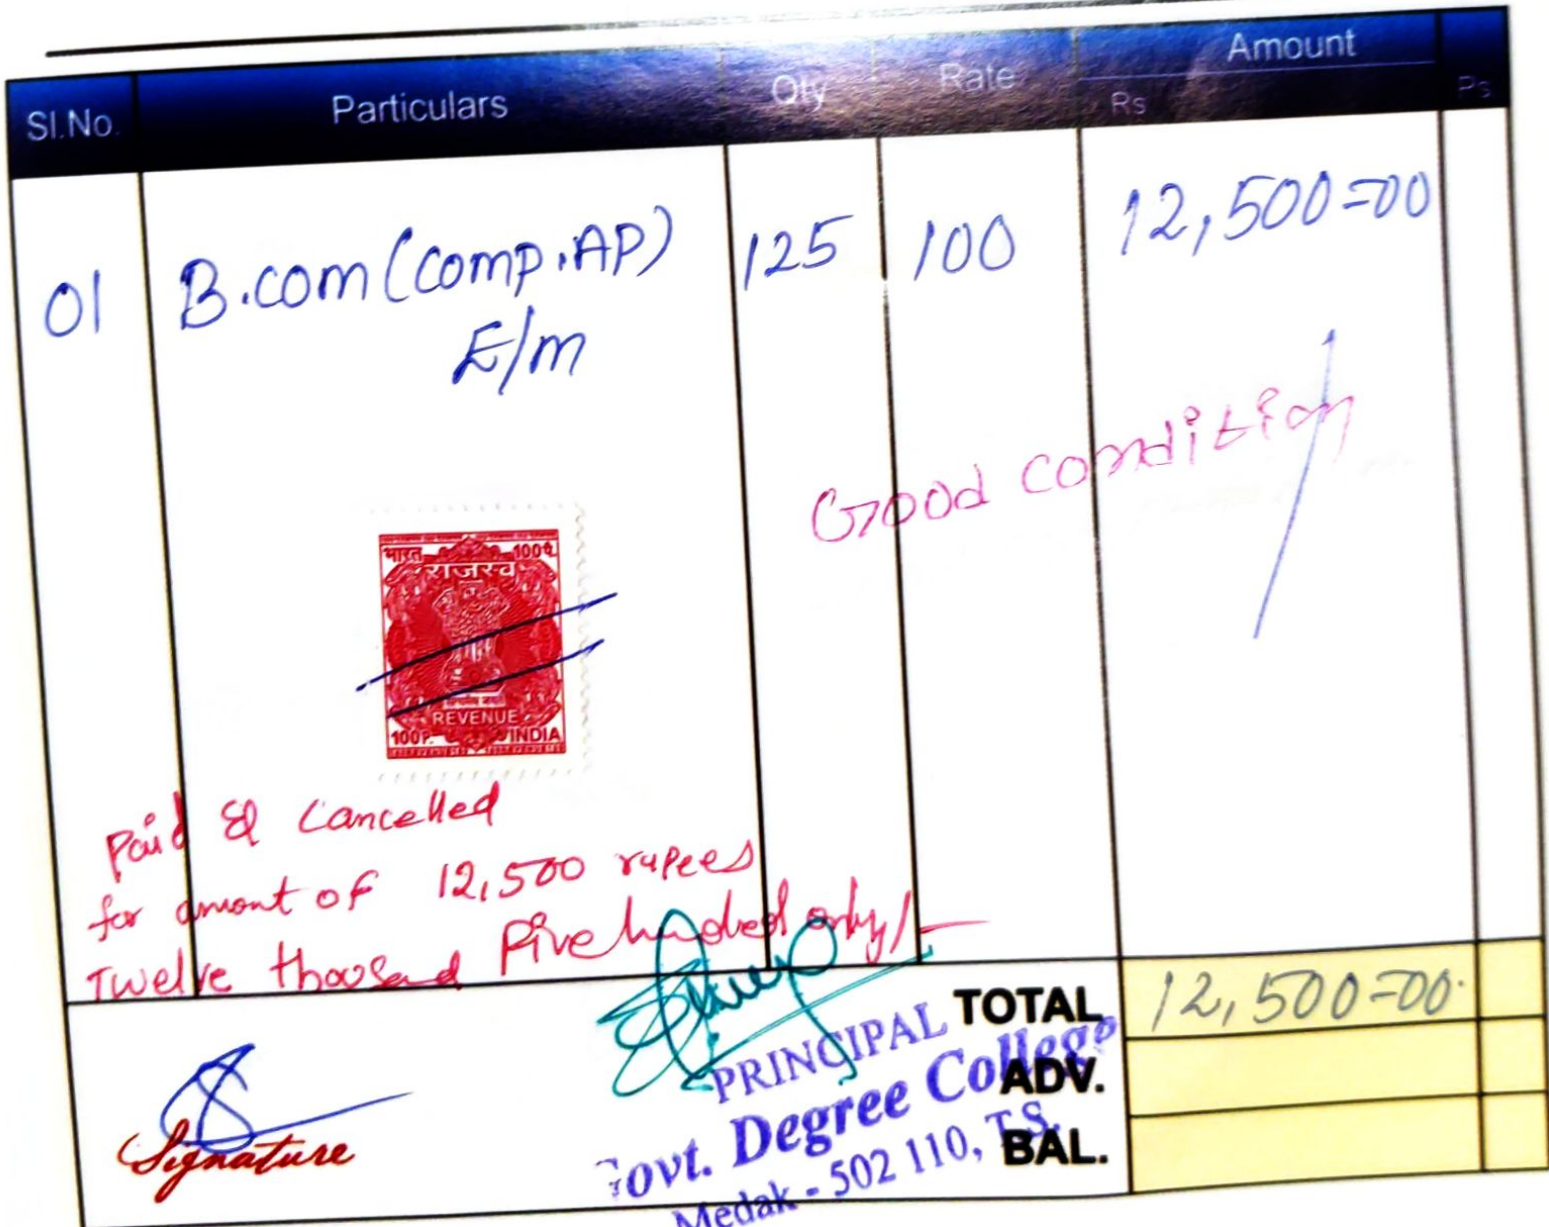 Sl.No. Particulars Qty Rate Amount
Rs Ps
01 B.com (comp.AP) 125 100 12,500=00
E/m
Good condition
भारत 100पै.
राजस्व
REVENUE
100P. INDIA
Paid & Cancelled
for amont of 12,500 rupees
Twelve thousand Five hundred only/-
TOTAL 12,500=00
PRINCIPAL
ADV.
Govt. Degree College
BAL.
Medak - 502 110, T.S.
Signature